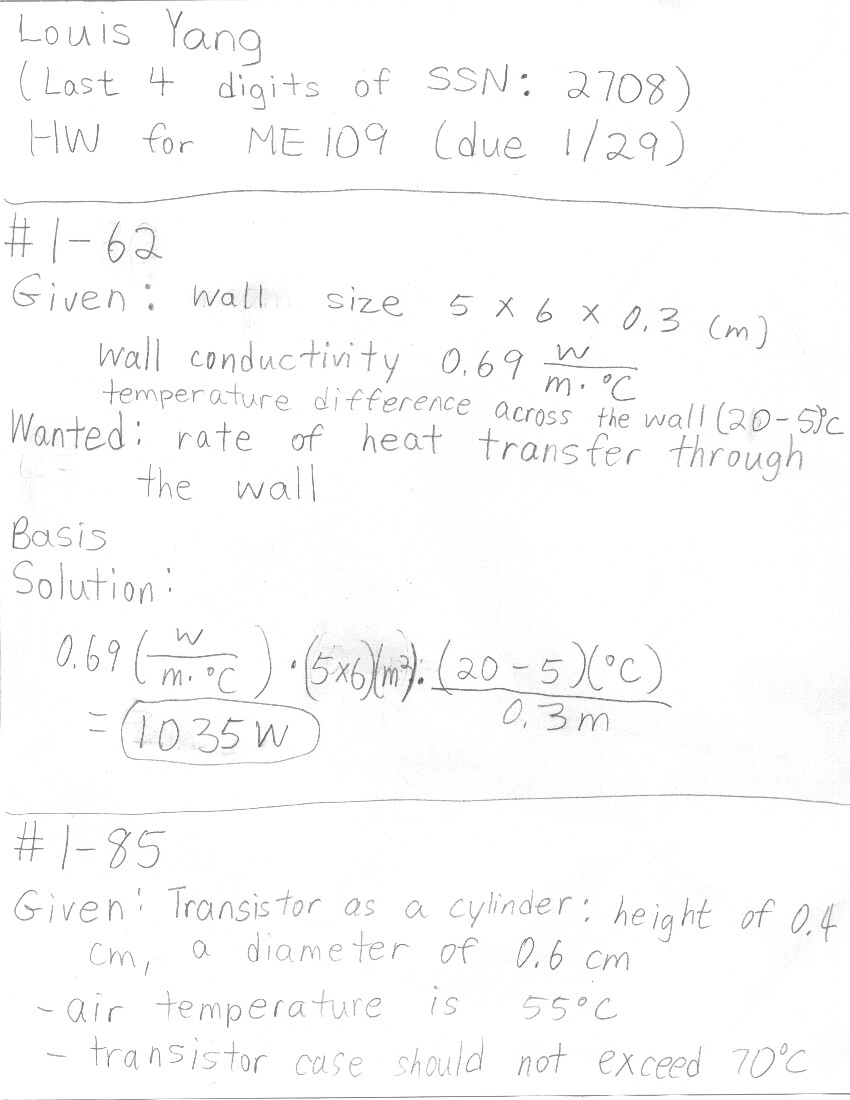 Louis Yang
(Last 4 digits of SSN: 2708)
HW for ME 109 (due 1/29)
#1-62
Given: wall size 5 x 6 x 0.3 (m)
wall conductivity 0.69 W/m·°C
temperature difference across the wall (20-5)°C
Wanted: rate of heat transfer through
the wall
Basis
Solution:
0.69 (W/m·°C) · (5x6)(m²) · (20-5)(°C)/0.3m
= 1035 W
#1-85
Given: Transistor as a cylinder: height of 0.4
cm, a diameter of 0.6 cm
- air temperature is 55°C
- transistor case should not exceed 70°C